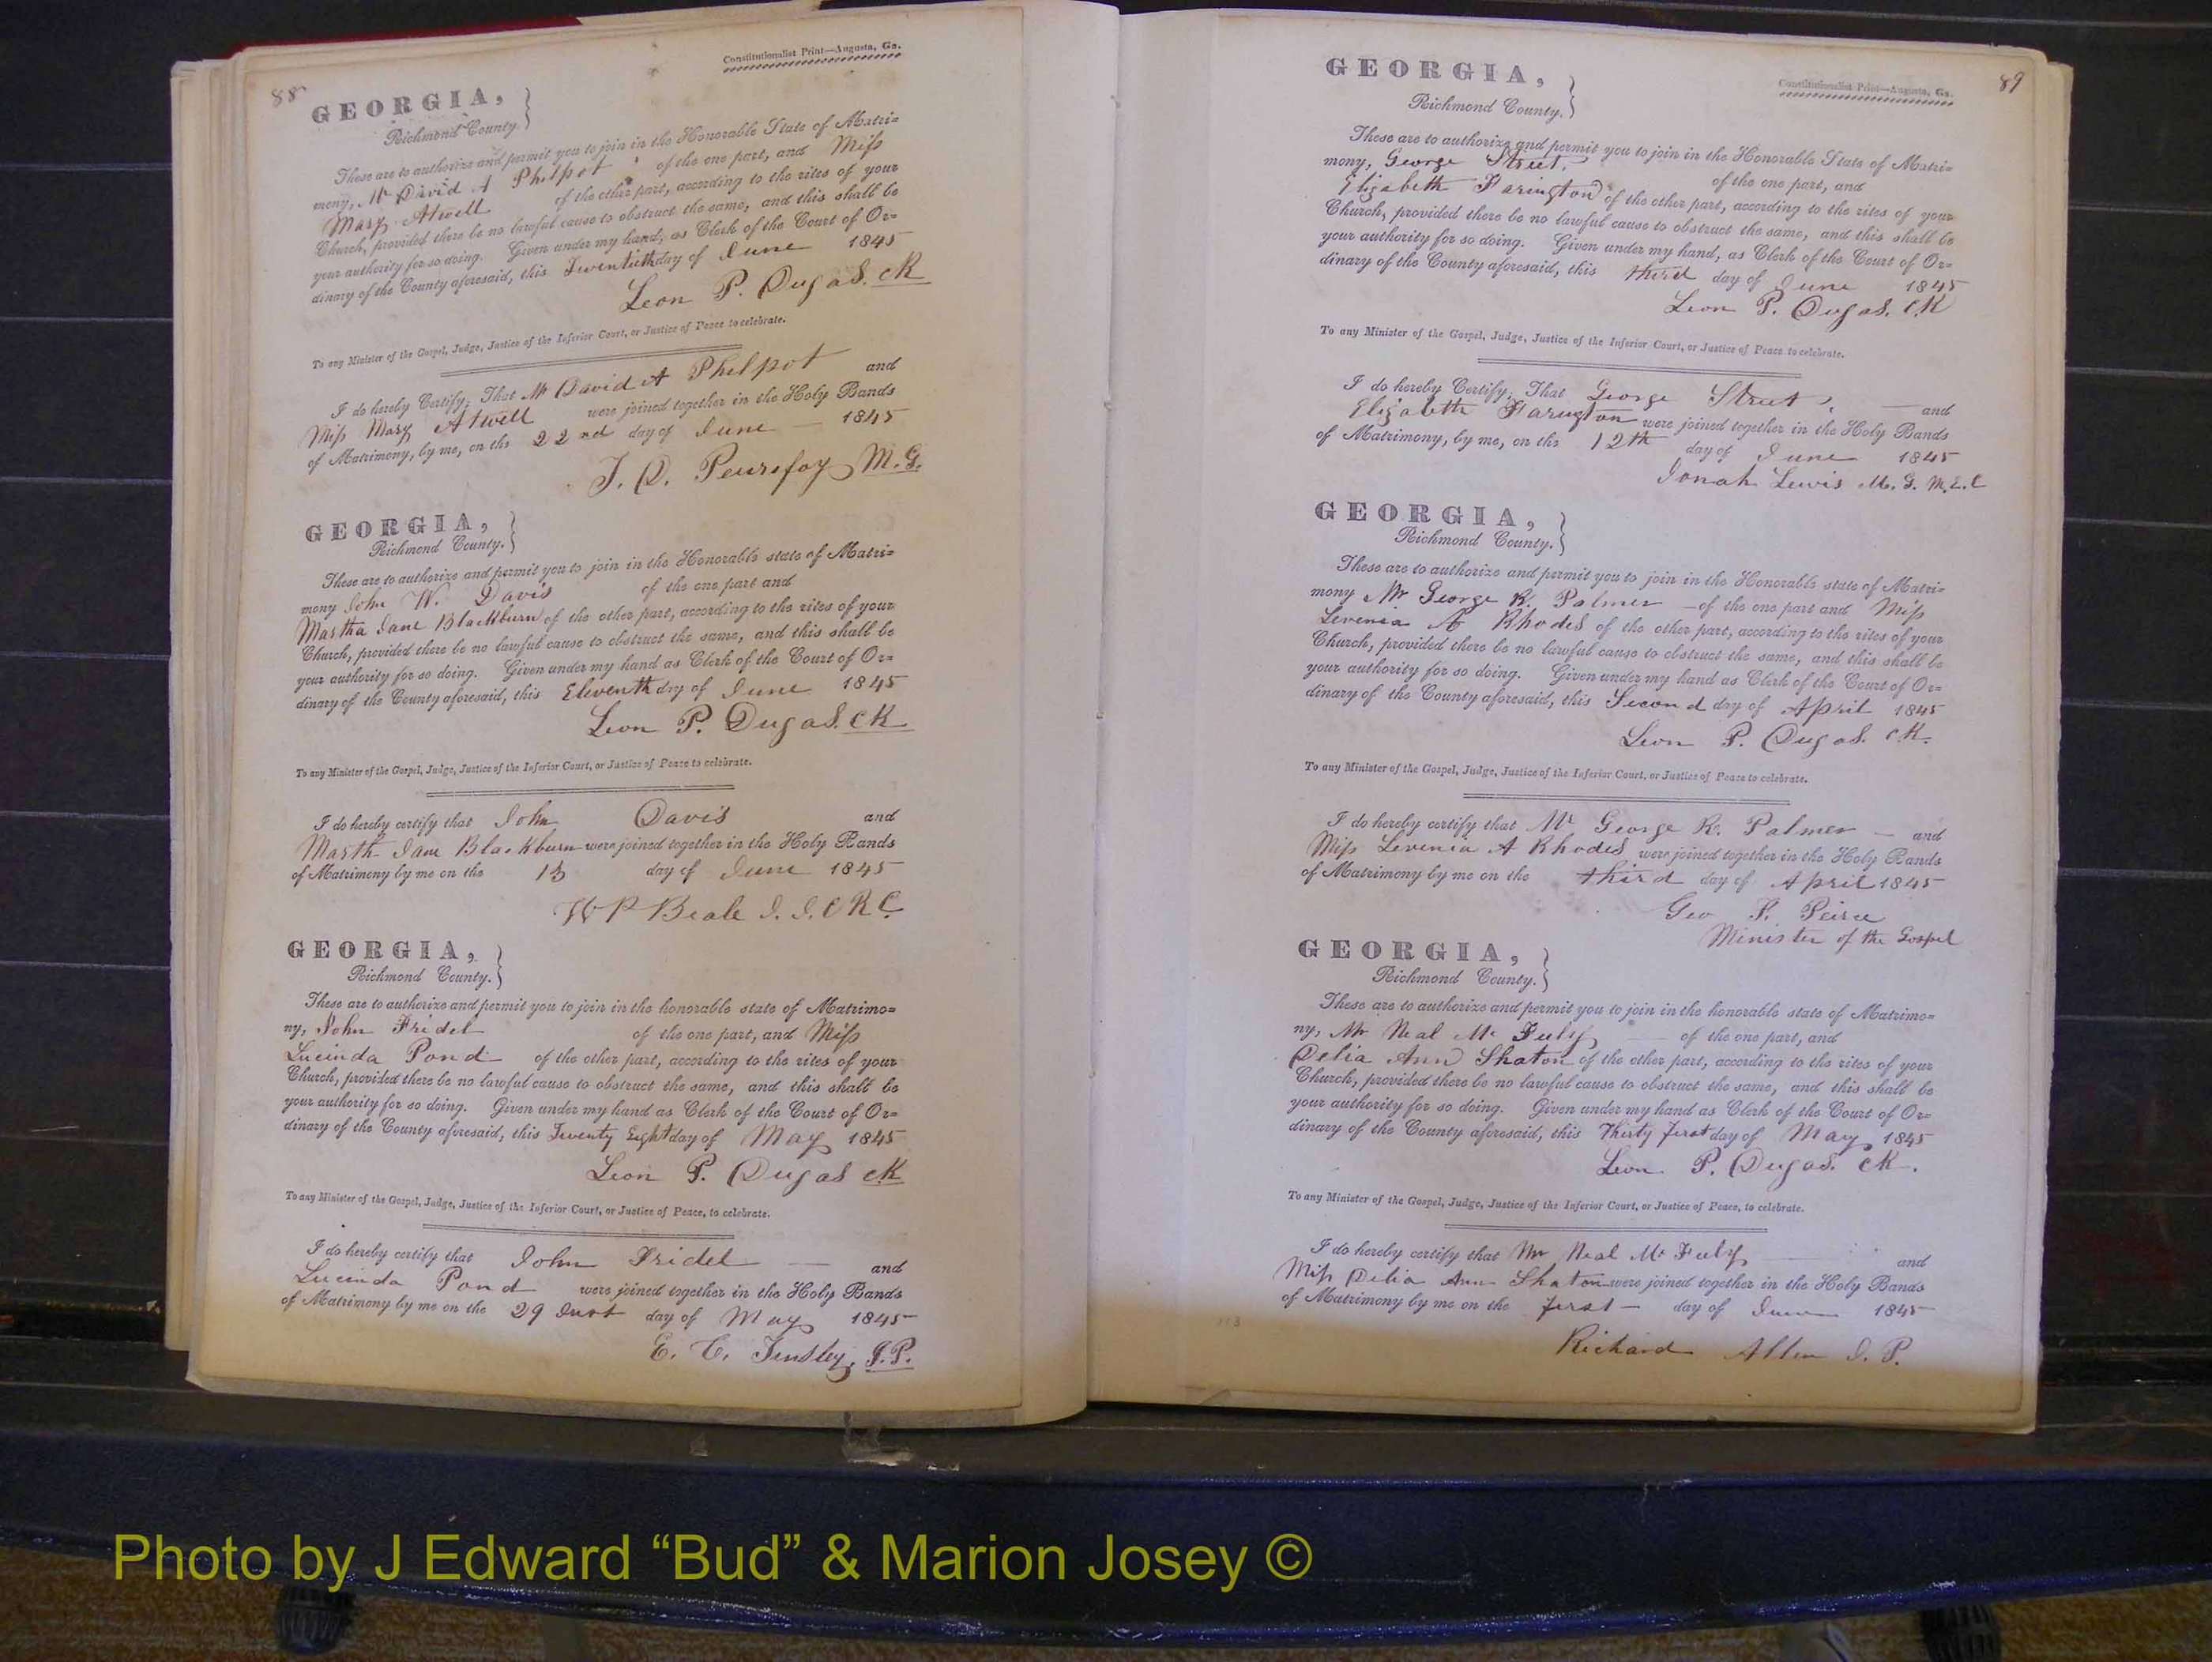 88
Constitutionalist Print—Augusta, Ga.
GEORGIA,
Richmond County.
These are to authorize and permit you to join in the Honorable State of Matri=
mony, Mr David A Philpot of the one part, and Miss
Mary Atwell of the other part, according to the rites of your
Church, provided there be no lawful cause to obstruct the same, and this shall be
your authority for so doing. Given under my hand, as Clerk of the Court of Or=
dinary of the County aforesaid, this Twentieth day of June 1845
Leon P. Dugas. CK
To any Minister of the Gospel, Judge, Justice of the Inferior Court, or Justice of Peace to celebrate.
I do hereby Certify, That Mr David A Philpot and
Miss Mary Atwell were joined together in the Holy Bands
of Matrimony, by me, on the 22nd day of June — 1845
J. D. Peurefoy M.G.
GEORGIA,
Richmond County.
These are to authorize and permit you to join in the Honorable state of Matri=
mony John W. Davis of the one part and
Martha Jane Blackburn of the other part, according to the rites of your
Church, provided there be no lawful cause to obstruct the same, and this shall be
your authority for so doing. Given under my hand as Clerk of the Court of Or=
dinary of the County aforesaid, this Eleventh day of June 1845
Leon P. Dugas. CK
To any Minister of the Gospel, Judge, Justice of the Inferior Court, or Justice of Peace to celebrate.
I do hereby certify that John Davis and
Marth Jane Blackburn were joined together in the Holy Bands
of Matrimony by me on the 13 day of June 1845
W P Beale J. I. C R C.
GEORGIA,
Richmond County.
These are to authorize and permit you to join in the honorable state of Matrimo=
ny, John Fridel of the one part, and Miss
Lucinda Pond of the other part, according to the rites of your
Church, provided there be no lawful cause to obstruct the same, and this shall be
your authority for so doing. Given under my hand as Clerk of the Court of Or=
dinary of the County aforesaid, this Twenty Eight day of May 1845
Leon P. Dugas CK
To any Minister of the Gospel, Judge, Justice of the Inferior Court, or Justice of Peace, to celebrate.
I do hereby certify that John Fridel — and
Lucinda Pond were joined together in the Holy Bands
of Matrimony by me on the 29 Inst day of May 1845
E. C. Tinsley, J.P.
89
Constitutionalist Print—Augusta, Ga.
GEORGIA,
Richmond County.
These are to authorize and permit you to join in the Honorable State of Matri=
mony, George Street, of the one part, and
Elizabeth Farington of the other part, according to the rites of your
Church, provided there be no lawful cause to obstruct the same, and this shall be
your authority for so doing. Given under my hand, as Clerk of the Court of Or=
dinary of the County aforesaid, this third day of June 1845
Leon P. Dugas. CK
To any Minister of the Gospel, Judge, Justice of the Inferior Court, or Justice of Peace to celebrate.
I do hereby Certify, That George Street, — and
Elizabeth Farington were joined together in the Holy Bands
of Matrimony, by me, on the 12th day of June 1845
Jonah Lewis M. G. M.E.C
GEORGIA,
Richmond County.
These are to authorize and permit you to join in the Honorable state of Matri=
mony Mr George R. Palmer — of the one part and Miss
Levenia A Rhodes of the other part, according to the rites of your
Church, provided there be no lawful cause to obstruct the same, and this shall be
your authority for so doing. Given under my hand as Clerk of the Court of Or=
dinary of the County aforesaid, this Second day of April 1845
Leon P. Dugas. CK.
To any Minister of the Gospel, Judge, Justice of the Inferior Court, or Justice of Peace to celebrate.
I do hereby certify that Mr George R. Palmer — and
Miss Levenia A Rhodes were joined together in the Holy Bands
of Matrimony by me on the third day of April 1845
Geo F. Peirce
Minister of the Gospel
GEORGIA,
Richmond County.
These are to authorize and permit you to join in the honorable state of Matrimo=
ny, Mr Neal Mc Fuly — of the one part, and
Delia Ann Shaton of the other part, according to the rites of your
Church, provided there be no lawful cause to obstruct the same, and this shall be
your authority for so doing. Given under my hand as Clerk of the Court of Or=
dinary of the County aforesaid, this Thirty first day of May 1845
Leon P. Dugas. CK.
To any Minister of the Gospel, Judge, Justice of the Inferior Court, or Justice of Peace, to celebrate.
I do hereby certify that Mr Neal Mc Fuly and
Miss Delia Ann Shaton were joined together in the Holy Bands
of Matrimony by me on the first — day of June 1845
Richard Allen J. P.
113
Photo by J Edward “Bud” & Marion Josey ©